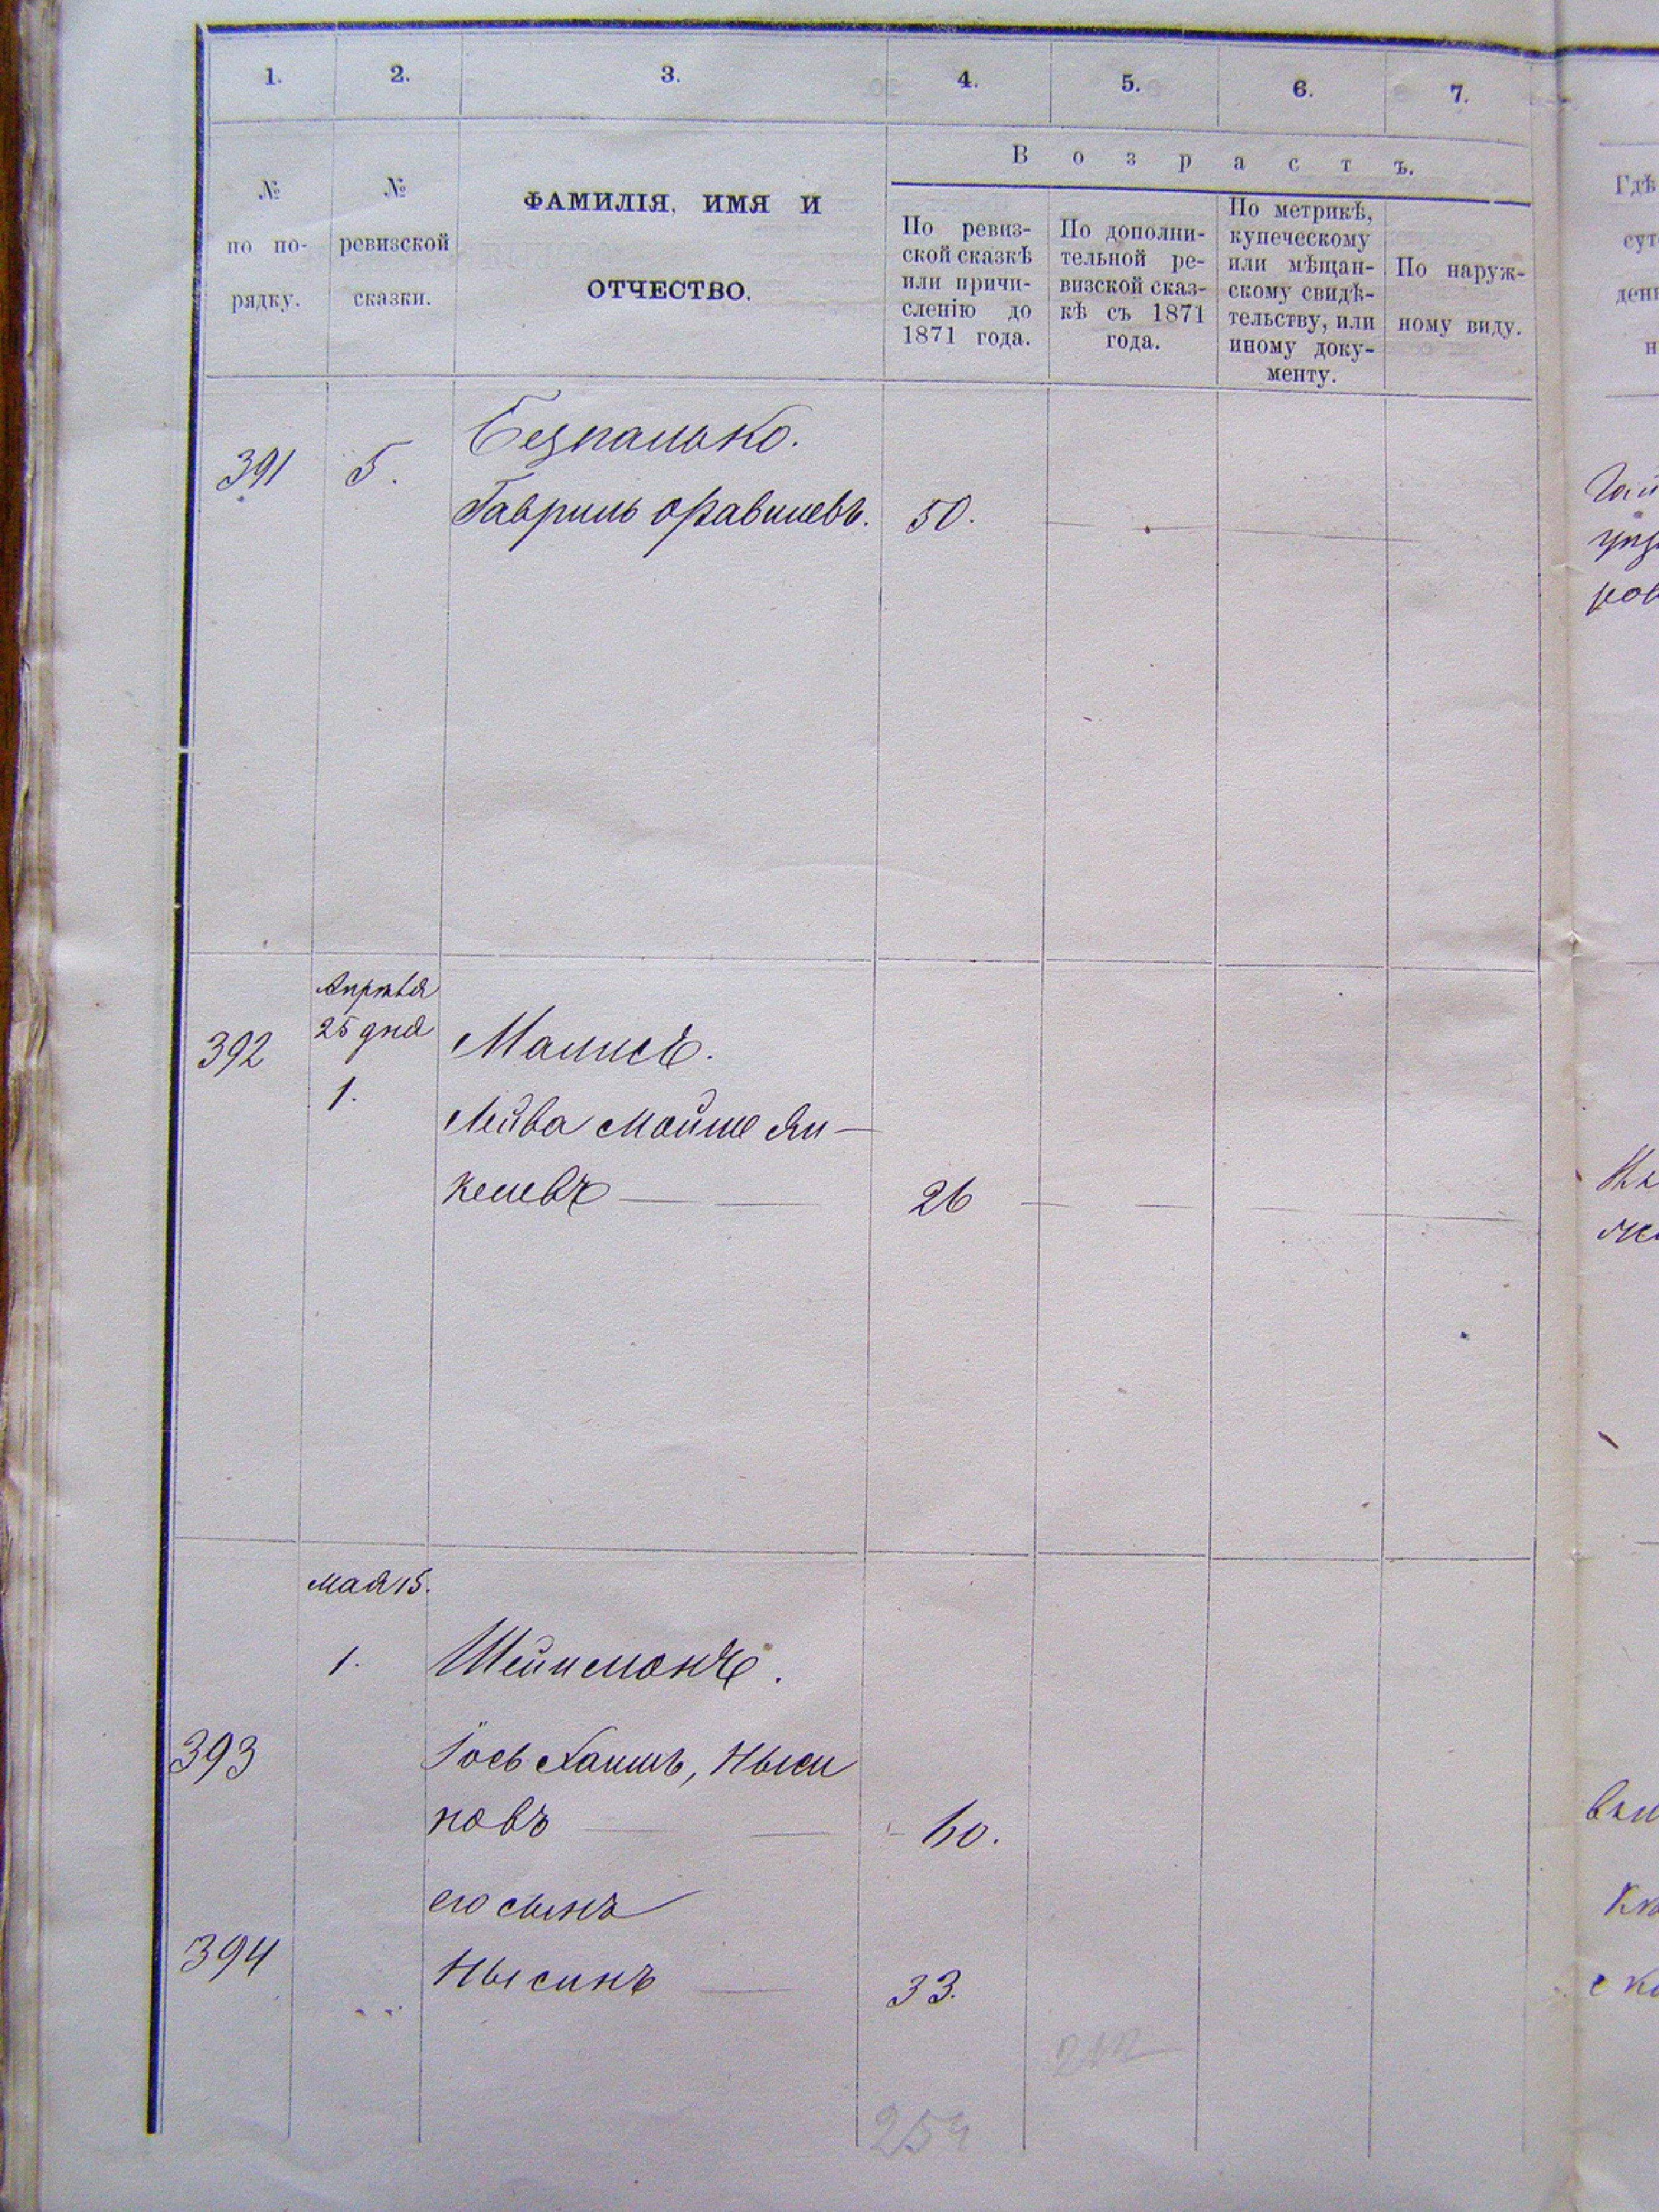 1. 2. 3. 4. 5. 6. 7.
№ по по- рядку.
№ ревизской сказки.
ФАМИЛІЯ, ИМЯ И
ОТЧЕСТВО.
Возрастъ.
По ревиз-
ской сказкѣ
или причи-
сленію до
1871 года.
По дополни-
тельной ре-
визской сказ-
кѣ съ 1871
года.
По метрикѣ,
купеческому
или мѣщан-
скому свидѣ-
тельству, или
иному доку-
менту.
По наруж-
ному виду.
Гдѣ
сут
ден
н
Безпалько.
391 5.
Гавриль 50.
Апрѣля
25 дня
392 Малисъ.
1.
Лейва Мойше Ян-
келевъ 26
мая 15.
1. Шейнманъ.
393 Іось Хаимъ, Ныси
новъ 60.
его сынъ
394 Нысинъ 33.
254